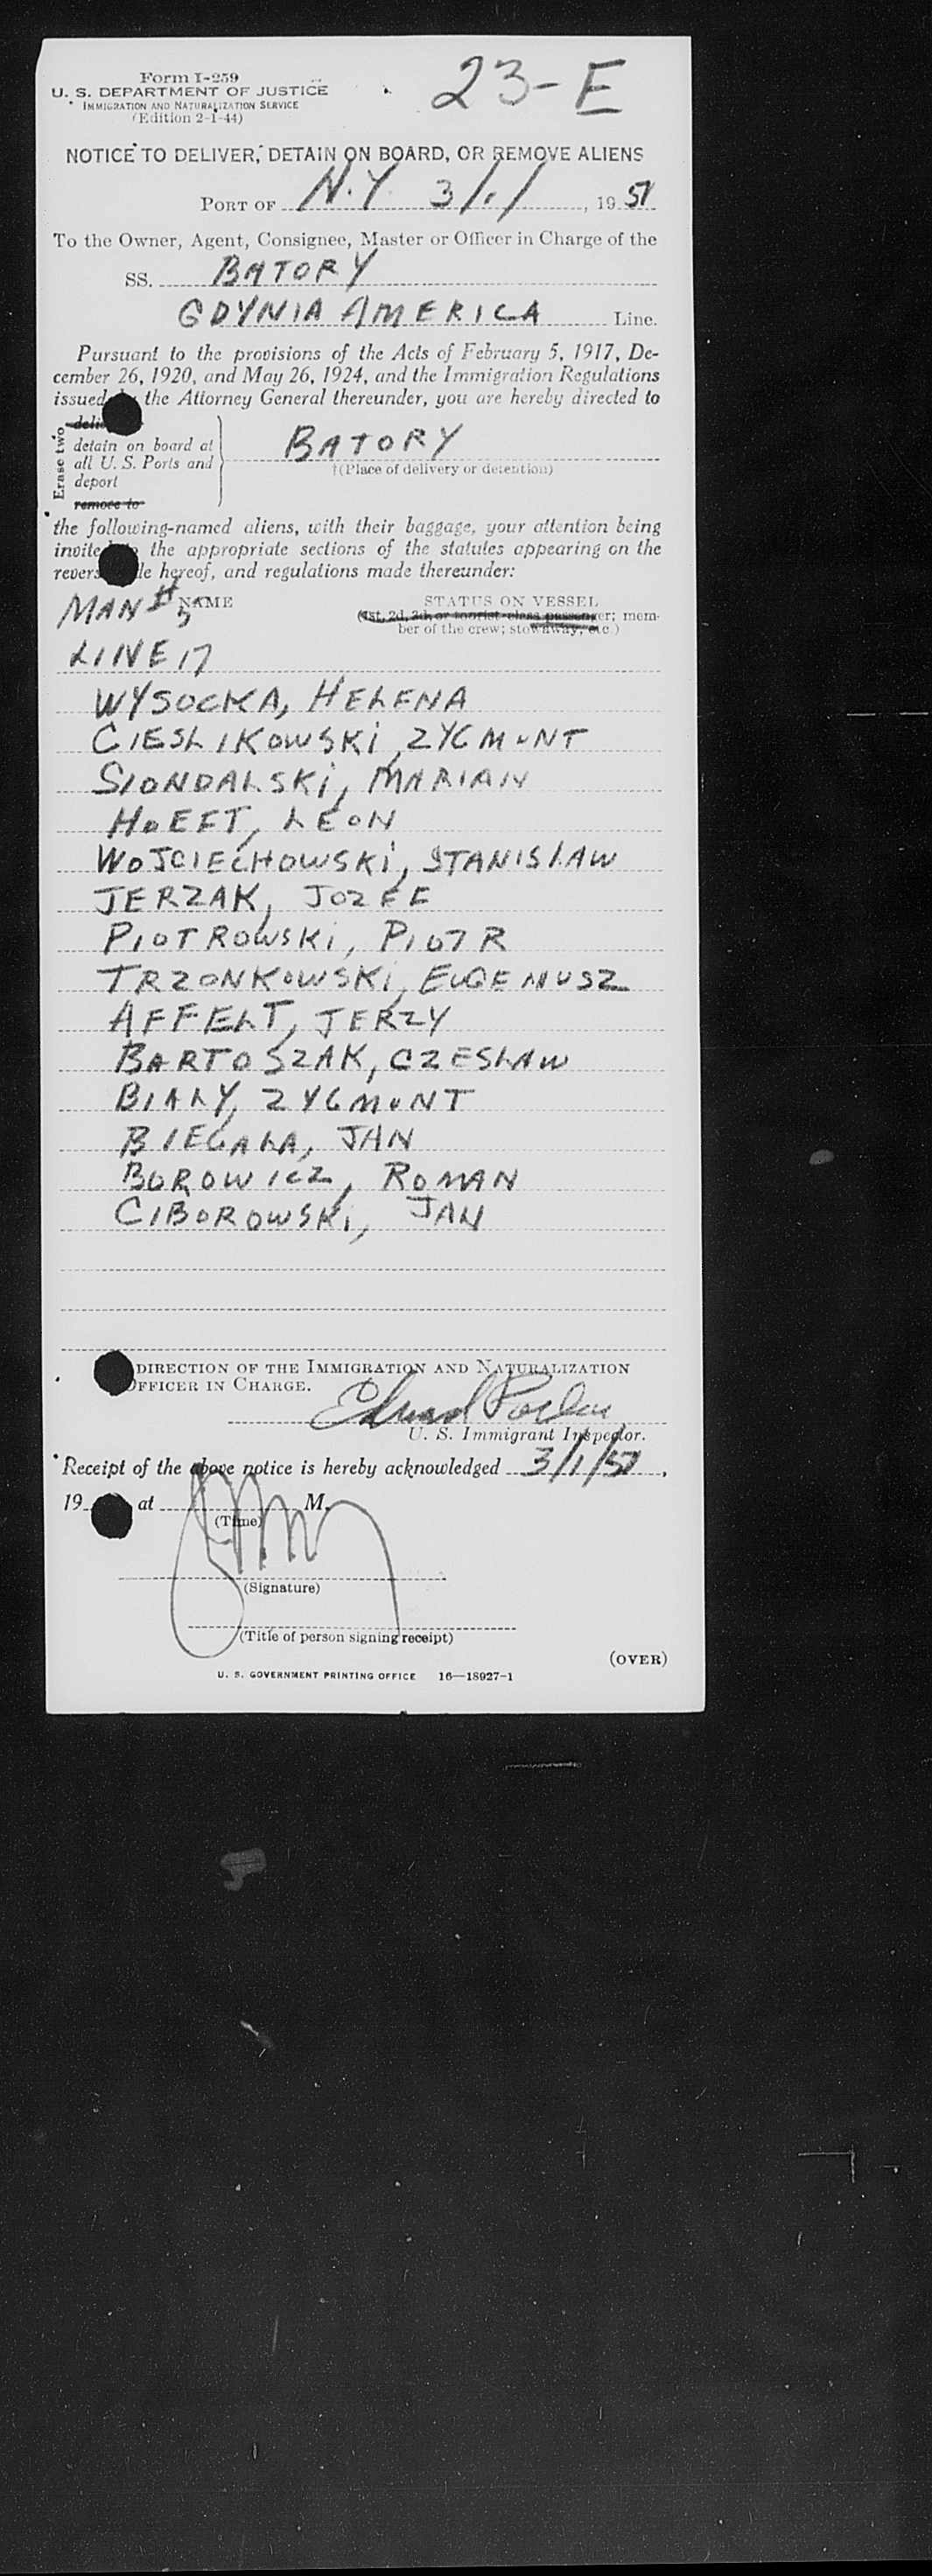 Form I-259
23-E
U. S. DEPARTMENT OF JUSTICE
IMMIGRATION AND NATURALIZATION SERVICE
(Edition 2-1-44)
NOTICE TO DELIVER, DETAIN ON BOARD, OR REMOVE ALIENS
PORT OF N.Y. 3/1/, 1951
To the Owner, Agent, Consignee, Master or Officer in Charge of the
SS. BATORY
GDYNIA AMERICA Line.
Pursuant to the provisions of the Acts of February 5, 1917, De-
cember 26, 1920, and May 26, 1924, and the Immigration Regulations
issued the Attorney General thereunder, you are hereby directed to
Erase two
detain on board at
all U. S. Ports and
deport
remove to
BATORY
†(Place of delivery or detention)
the following-named aliens, with their baggage, your attention being
invite the appropriate sections of the statutes appearing on the
revers le hereof, and regulations made thereunder:
MAN # 5 NAME STATUS ON VESSEL
(1st, 2d, 3d, or tourist-class passenger; mem-
ber of the crew; stowaway, etc.)
LINE 17
WYSOCKA, HELENA
CIESLIKOWSKI, ZYGMUNT
SIONDALSKI, MARIAN
HOEFT, LEON
WOJCIECHOWSKI, STANISLAW
JERZAK, JOZEF
PIOTROWSKI, PIOTR
TRZONKOWSKI, EUGENUSZ
AFFELT, JERZY
BARTOSZAK, CZESLAW
BIALY, ZYGMUNT
BIEGALA, JAN
BOROWICZ, ROMAN
CIBOROWSKI, JAN
DIRECTION OF THE IMMIGRATION AND NATURALIZATION
OFFICER IN CHARGE.
Edward
U. S. Immigrant Inspector.
Receipt of the above notice is hereby acknowledged 3/1/51,
19 at M.
(Time)
(Signature)
(Title of person signing receipt)
(OVER)
U. S. GOVERNMENT PRINTING OFFICE 16—18927-1